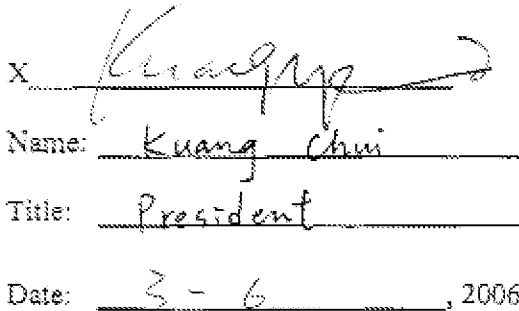 X
Name: Kuang Chui
Title: President
Date: 3 - 6, 2006